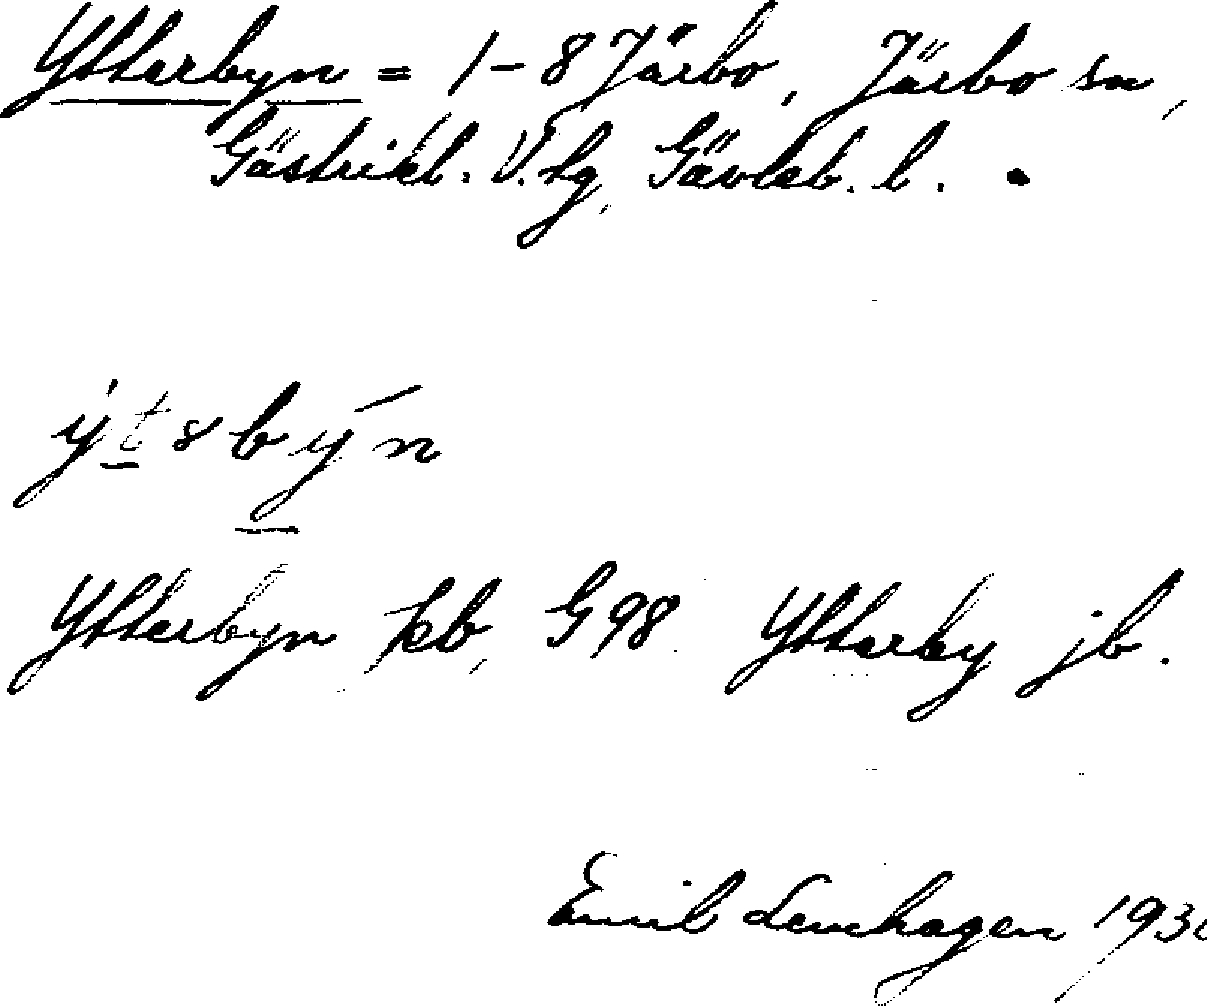 Ytterbyn = 1-8 Järbo, Järbo sn,
Gästrikl. V. tg, Gävleb. l.
Ytterbyn kb, G 98 Ytterby jb.
Emil Lenhagen